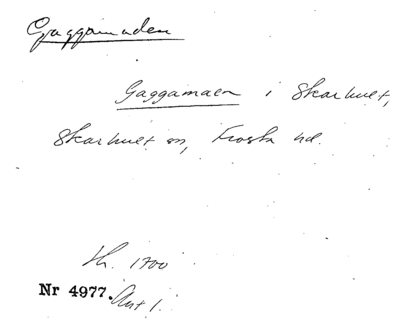 Gaggamaden
Gaggamaen i Skarhult,
Skarhult sn, Frosta hd.
th. 1700
Nr 4977. Ant 1.